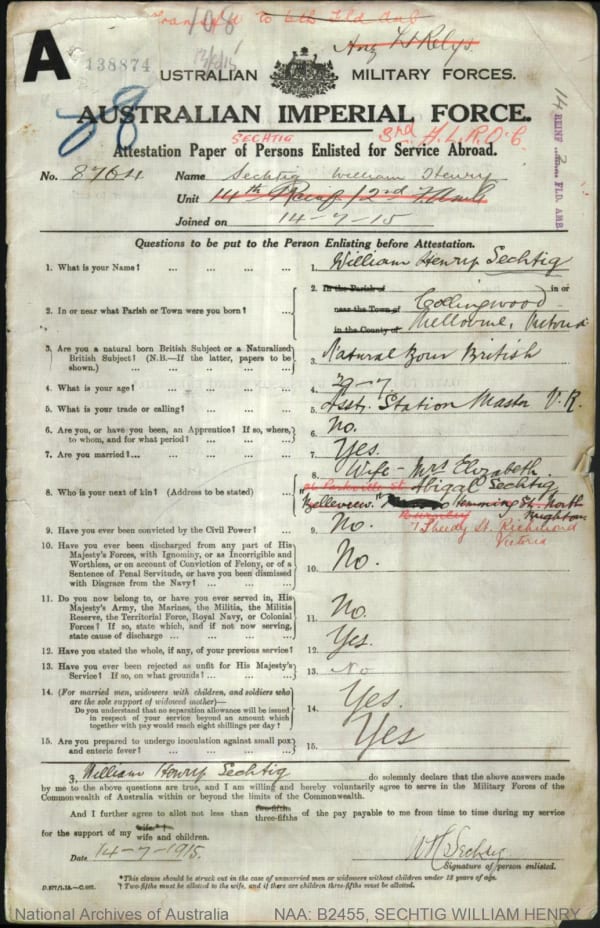 Transferred to 6th Fld Amb
108
A
138874
AUSTRALIAN MILITARY FORCES.
AUSTRALIAN IMPERIAL FORCE.
SECHTIG
3rd
Attestation Paper of Persons Enlisted for Service Abroad.
14 REINF 2 FLD. AMB.
No. 8764 Name Sechtig William Henry
Unit 14th Reinf 2nd F. Amb
Joined on 14-7-15
Questions to be put to the Person Enlisting before Attestation.
1. What is your Name? ... ... ... ... 1. William Henry Sechtig
2. In or near what Parish or Town were you born? ... 2. In the Parish of in or
near the Town of Collingwood
in the County of Melbourne, Victoria
3. Are you a natural born British Subject or a Naturalized
British Subject? (N.B.—If the latter, papers to be
shown.) ... ... ... ... ... 3. Natural Born British
4. What is your age? ... ... ... ... 4. 29-7
5. What is your trade or calling? ... ... ... 5. Asst. Station Master V.R.
6. Are you, or have you been, an Apprentice? If so, where,
to whom, and for what period? ... ... ... 6. No.
7. Are you married? ... ... ... ... 7. Yes.
8. Who is your next of kin? (Address to be stated) ... 8. Wife - Mrs Elizabeth
Abigal Sechtig
"Belleview" Hemming St. North
Brighton
7 Sheedy St. Richmond
Victoria
9. Have you ever been convicted by the Civil Power? ... 9. No.
10. Have you ever been discharged from any part of His
Majesty's Forces, with Ignominy, or as Incorrigible and
Worthless, or on account of Conviction of Felony, or of a
Sentence of Penal Servitude, or have you been dismissed
with Disgrace from the Navy? ... ... ... 10. No.
11. Do you now belong to, or have you ever served in, His
Majesty's Army, the Marines, the Militia, the Militia
Reserve, the Territorial Force, Royal Navy, or Colonial
Forces? If so, state which, and if not now serving,
state cause of discharge ... ... ... ... 11. No.
12. Have you stated the whole, if any, of your previous service? 12. Yes.
13. Have you ever been rejected as unfit for His Majesty's
Service? If so, on what grounds? ... ... ... 13. No
14. (For married men, widowers with children, and soldiers who
are the sole support of widowed mother)—
Do you understand that no separation allowance will be issued
in respect of your service beyond an amount which
together with pay would reach eight shillings per day? 14. Yes.
15. Are you prepared to undergo inoculation against small pox
and enteric fever? ... ... ... ... 15. Yes
I, William Henry Sechtig do solemnly declare that the above answers made
by me to the above questions are true, and I am willing and hereby voluntarily agree to serve in the Military Forces of the
Commonwealth of Australia within or beyond the limits of the Commonwealth.
And I further agree to allot not less than two-fifths three-fifths of the pay payable to me from time to time during my service
for the support of my wife*† wife and children.
Date 14-7-1915.
WH Sechtig
Signature of person enlisted.
*This clause should be struck out in the case of unmarried men or widowers without children under 18 years of age.
† Two-fifths must be allotted to the wife, and if there are children three-fifths must be allotted.
National Archives of Australia NAA: B2455, SECHTIG WILLIAM HENRY